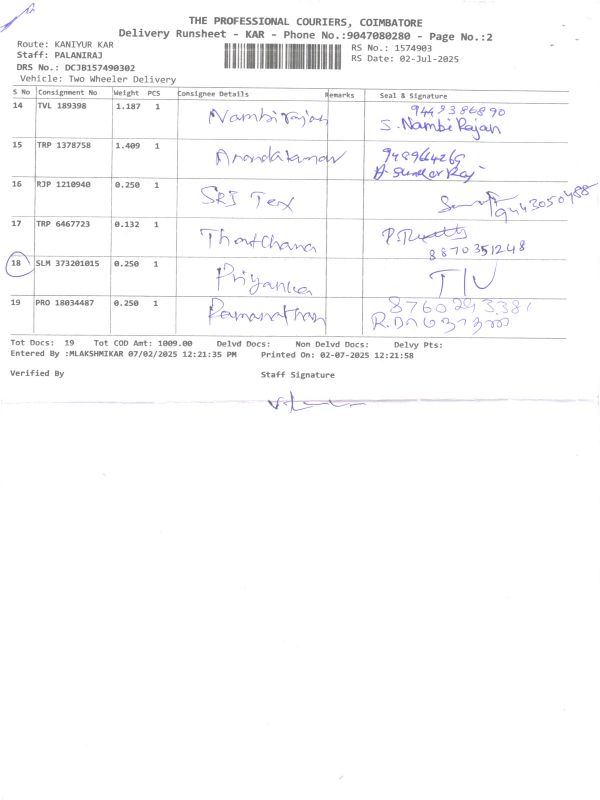 THE PROFESSIONAL COURIERS, COIMBATORE
Delivery Runsheet - KAR - Phone No.:9047080280 - Page No.:2
Route: KANIYUR KAR
RS No.: 1574903
Staff: PALANIRAJ
RS Date: 02-Jul-2025
DRS No.: DCJB157490302
Vehicle: Two Wheeler Delivery
S No Consignment No Weight PCS Consignee Details Remarks Seal & Signature
14 TVL 189398 1.187 1 Nambirajan
S. Nambi Rajan
15 TRP 1378758 1.409 1
A. Sundar Raj
16 RJP 1210940 0.250 1 SRI Tex 9443050488
17 TRP 6467723 0.132 1
8870351248
18 SLM 373201015 0.250 1 Priyanka
19 PRO 18034487 0.250 1 Ramanathan
Tot Docs: 19 Tot COD Amt: 1009.00 Delvd Docs: Non Delvd Docs: Delvy Pts:
Entered By :MLAKSHMIKAR 07/02/2025 12:21:35 PM Printed On: 02-07-2025 12:21:58
Verified By Staff Signature